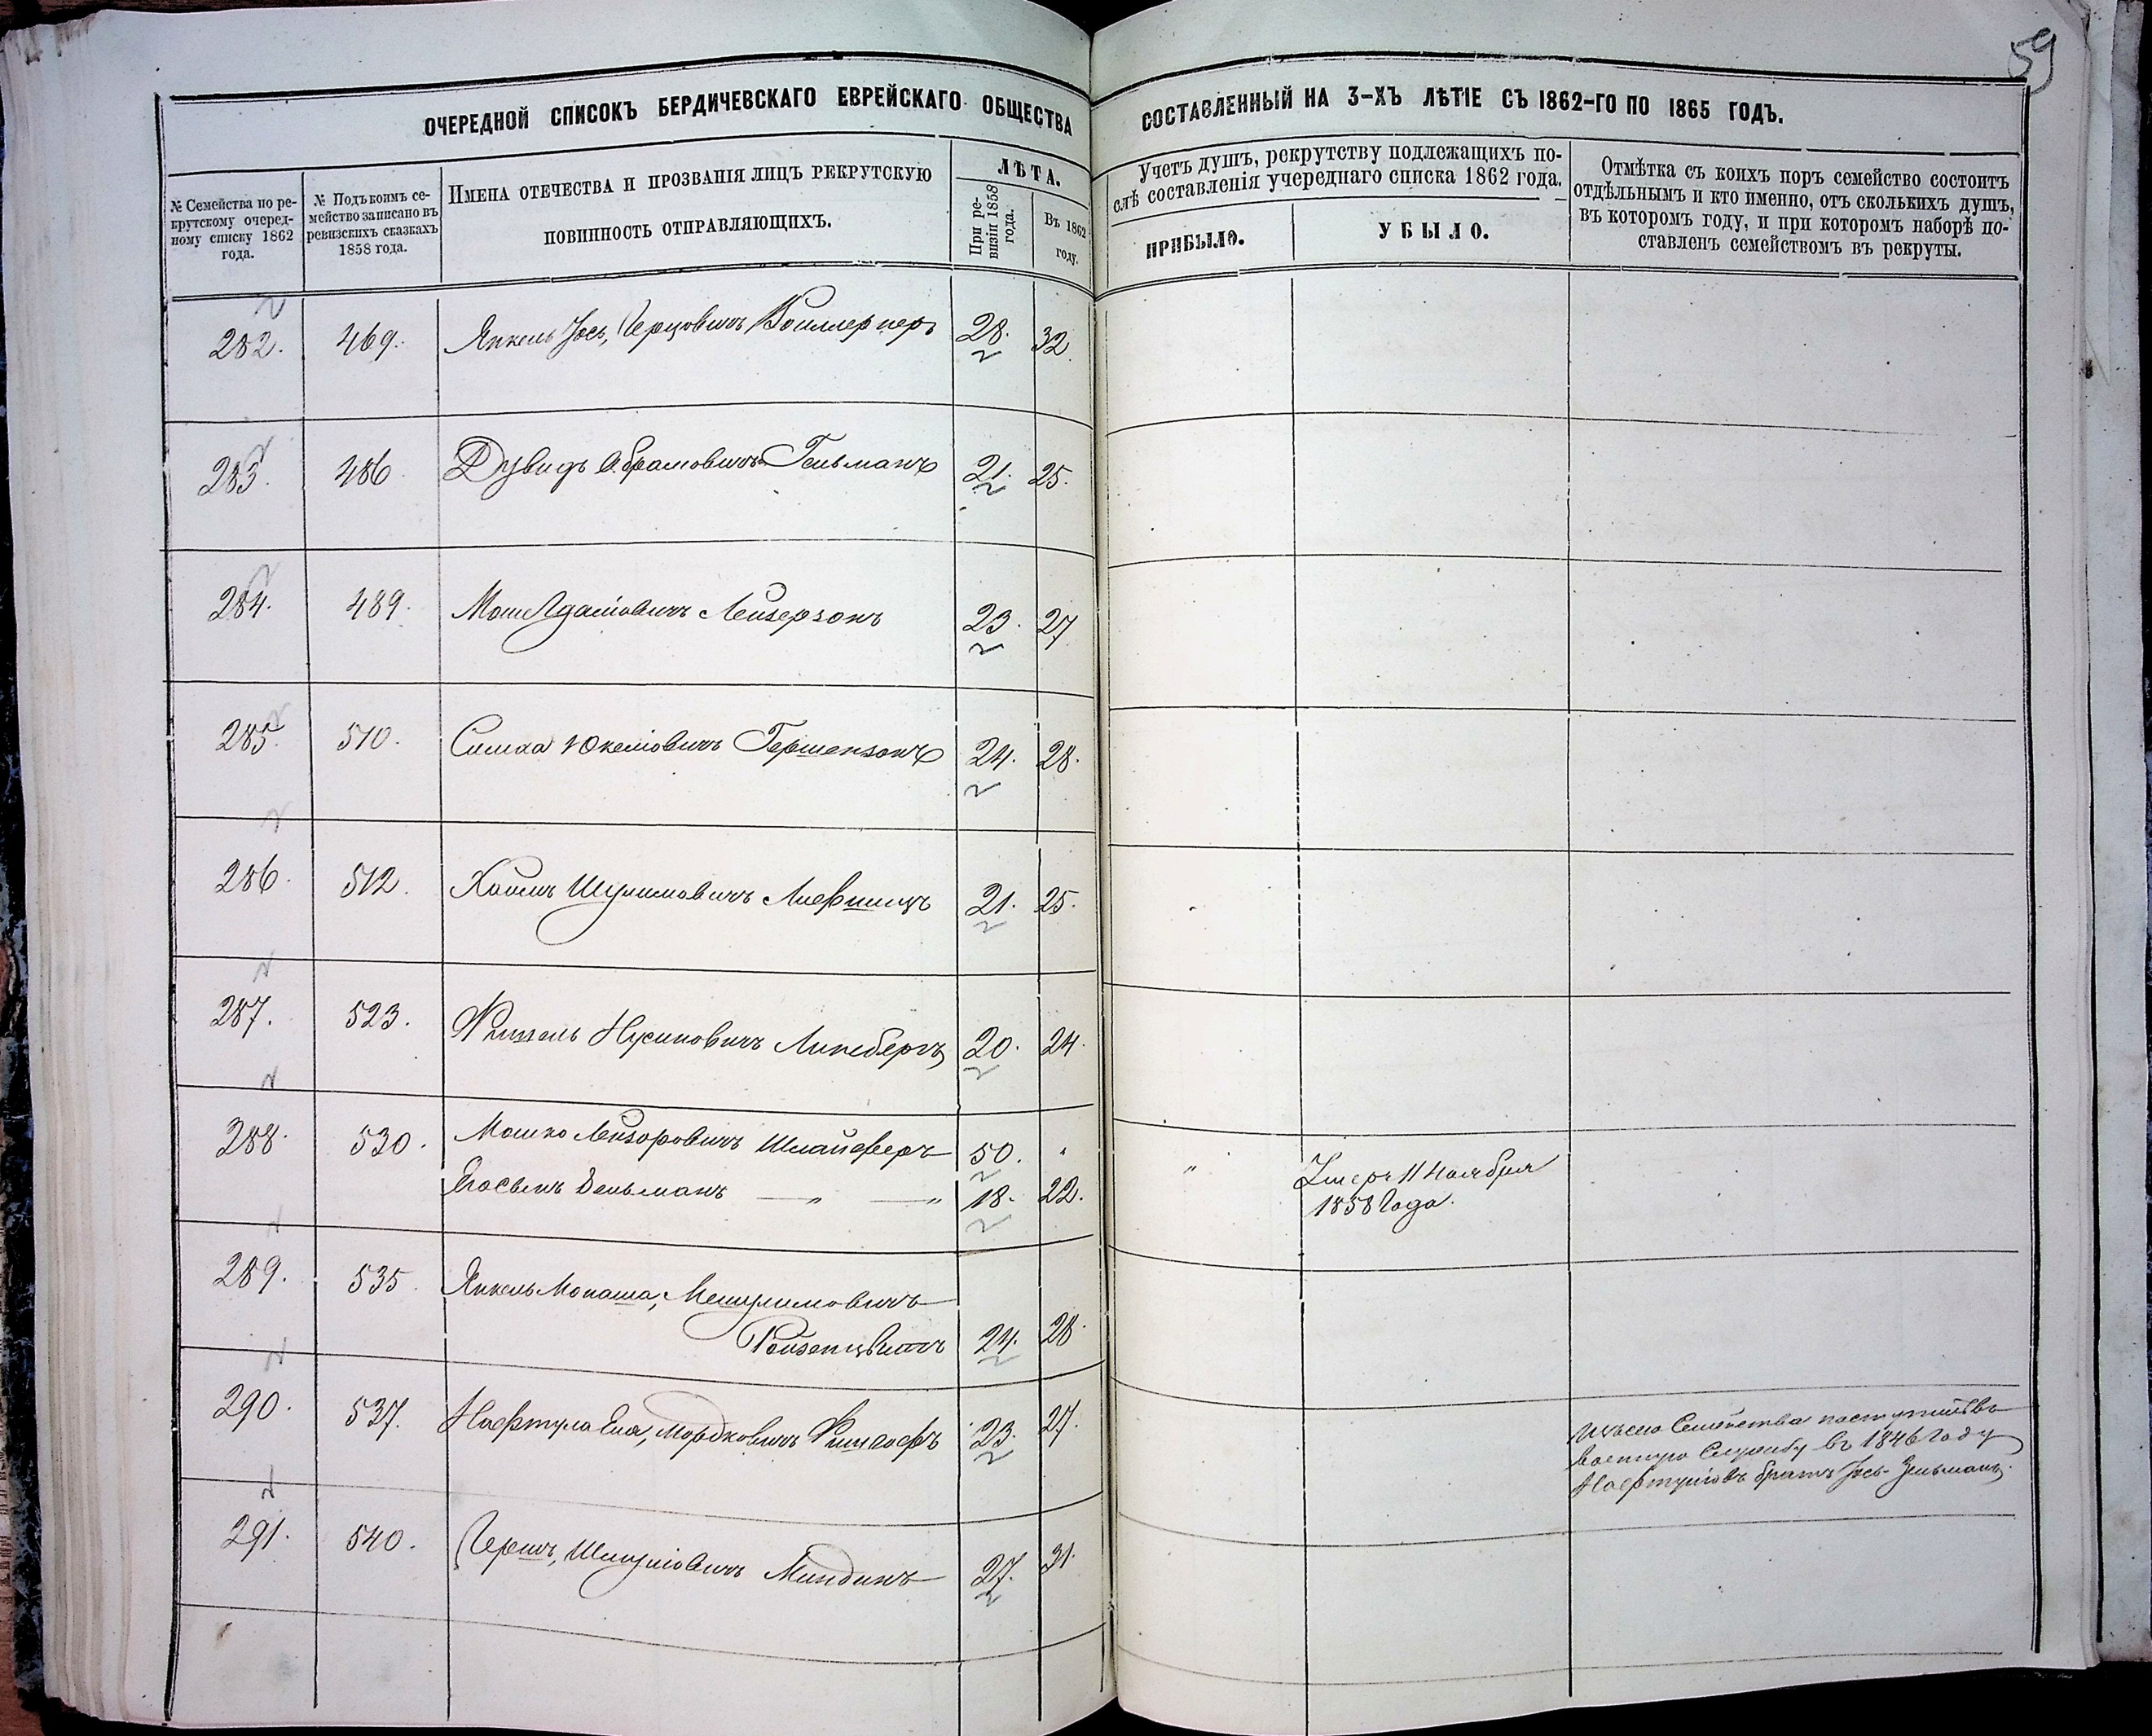 59
ОЧЕРЕДНОЙ СПИСОКЪ БЕРДИЧЕВСКАГО ЕВРЕЙСКАГО ОБЩЕСТВА
СОСТАВЛЕННЫЙ НА 3-ХЪ ЛѢТІЕ СЪ 1862-ГО ПО 1865 ГОДЪ.
№ Семейства по ре-
крутскому очеред-
ному списку 1862
года.
№ Подъ коимъ се-
мейство записано въ
ревизскихъ сказкахъ
1858 года.
ИМЕНА ОТЕЧЕСТВА И ПРОЗВАНІЯ ЛИЦЪ РЕКРУТСКУЮ
ПОВИННОСТЬ ОТПРАВЛЯЮЩИХЪ.
ЛѢТА.
При ре-
визіи 1858
года.
Въ 1862
году.
Учетъ душъ, рекрутству подлежащихъ по-
слѣ составленія учереднаго списка 1862 года.
ПРИБЫЛО.
УБЫЛО.
Отмѣтка съ коихъ поръ семейство состоитъ
отдѣльнымъ и кто именно, отъ сколькихъ душъ,
въ котором году, и при котором наборѣ по-
ставленъ семействомъ въ рекруты.
282. 469. Янкель Іось, Герцовичъ 28. 32
283. 486 Дувидъ Абрамовичъ Гельманъ 21. 25.
284. 489. Мошко Адамовичъ Лейзерзонъ 23. 27
285. 510. Симха Юкелiовичъ Гершензонъ 24. 28.
286. 512. Хаимъ Шулимовичъ Лифшицъ 21. 25.
287. 523. Фишель Нусиновичъ Линсбергъ 20. 24.
288. 530. Мошко Лейзоровичъ Шлайферъ 50. " " Умеръ 11 Ноября
1858 Года.
Зельманъ — " — " 18. 22.
289. 535. Янкель Монаша, Мешулимовичъ
Ройзенцвитъ 24. 28.
290. 537. Нафтула Еля, Мордковичъ 23. 27.
Изъ сего Семейства поступилъ въ
военную Службу въ 1846 Году
Нафтуловъ братъ Іось-Зельманъ.
291. 540. Гершъ, Шмулiовичъ Миндинъ 27. 31.